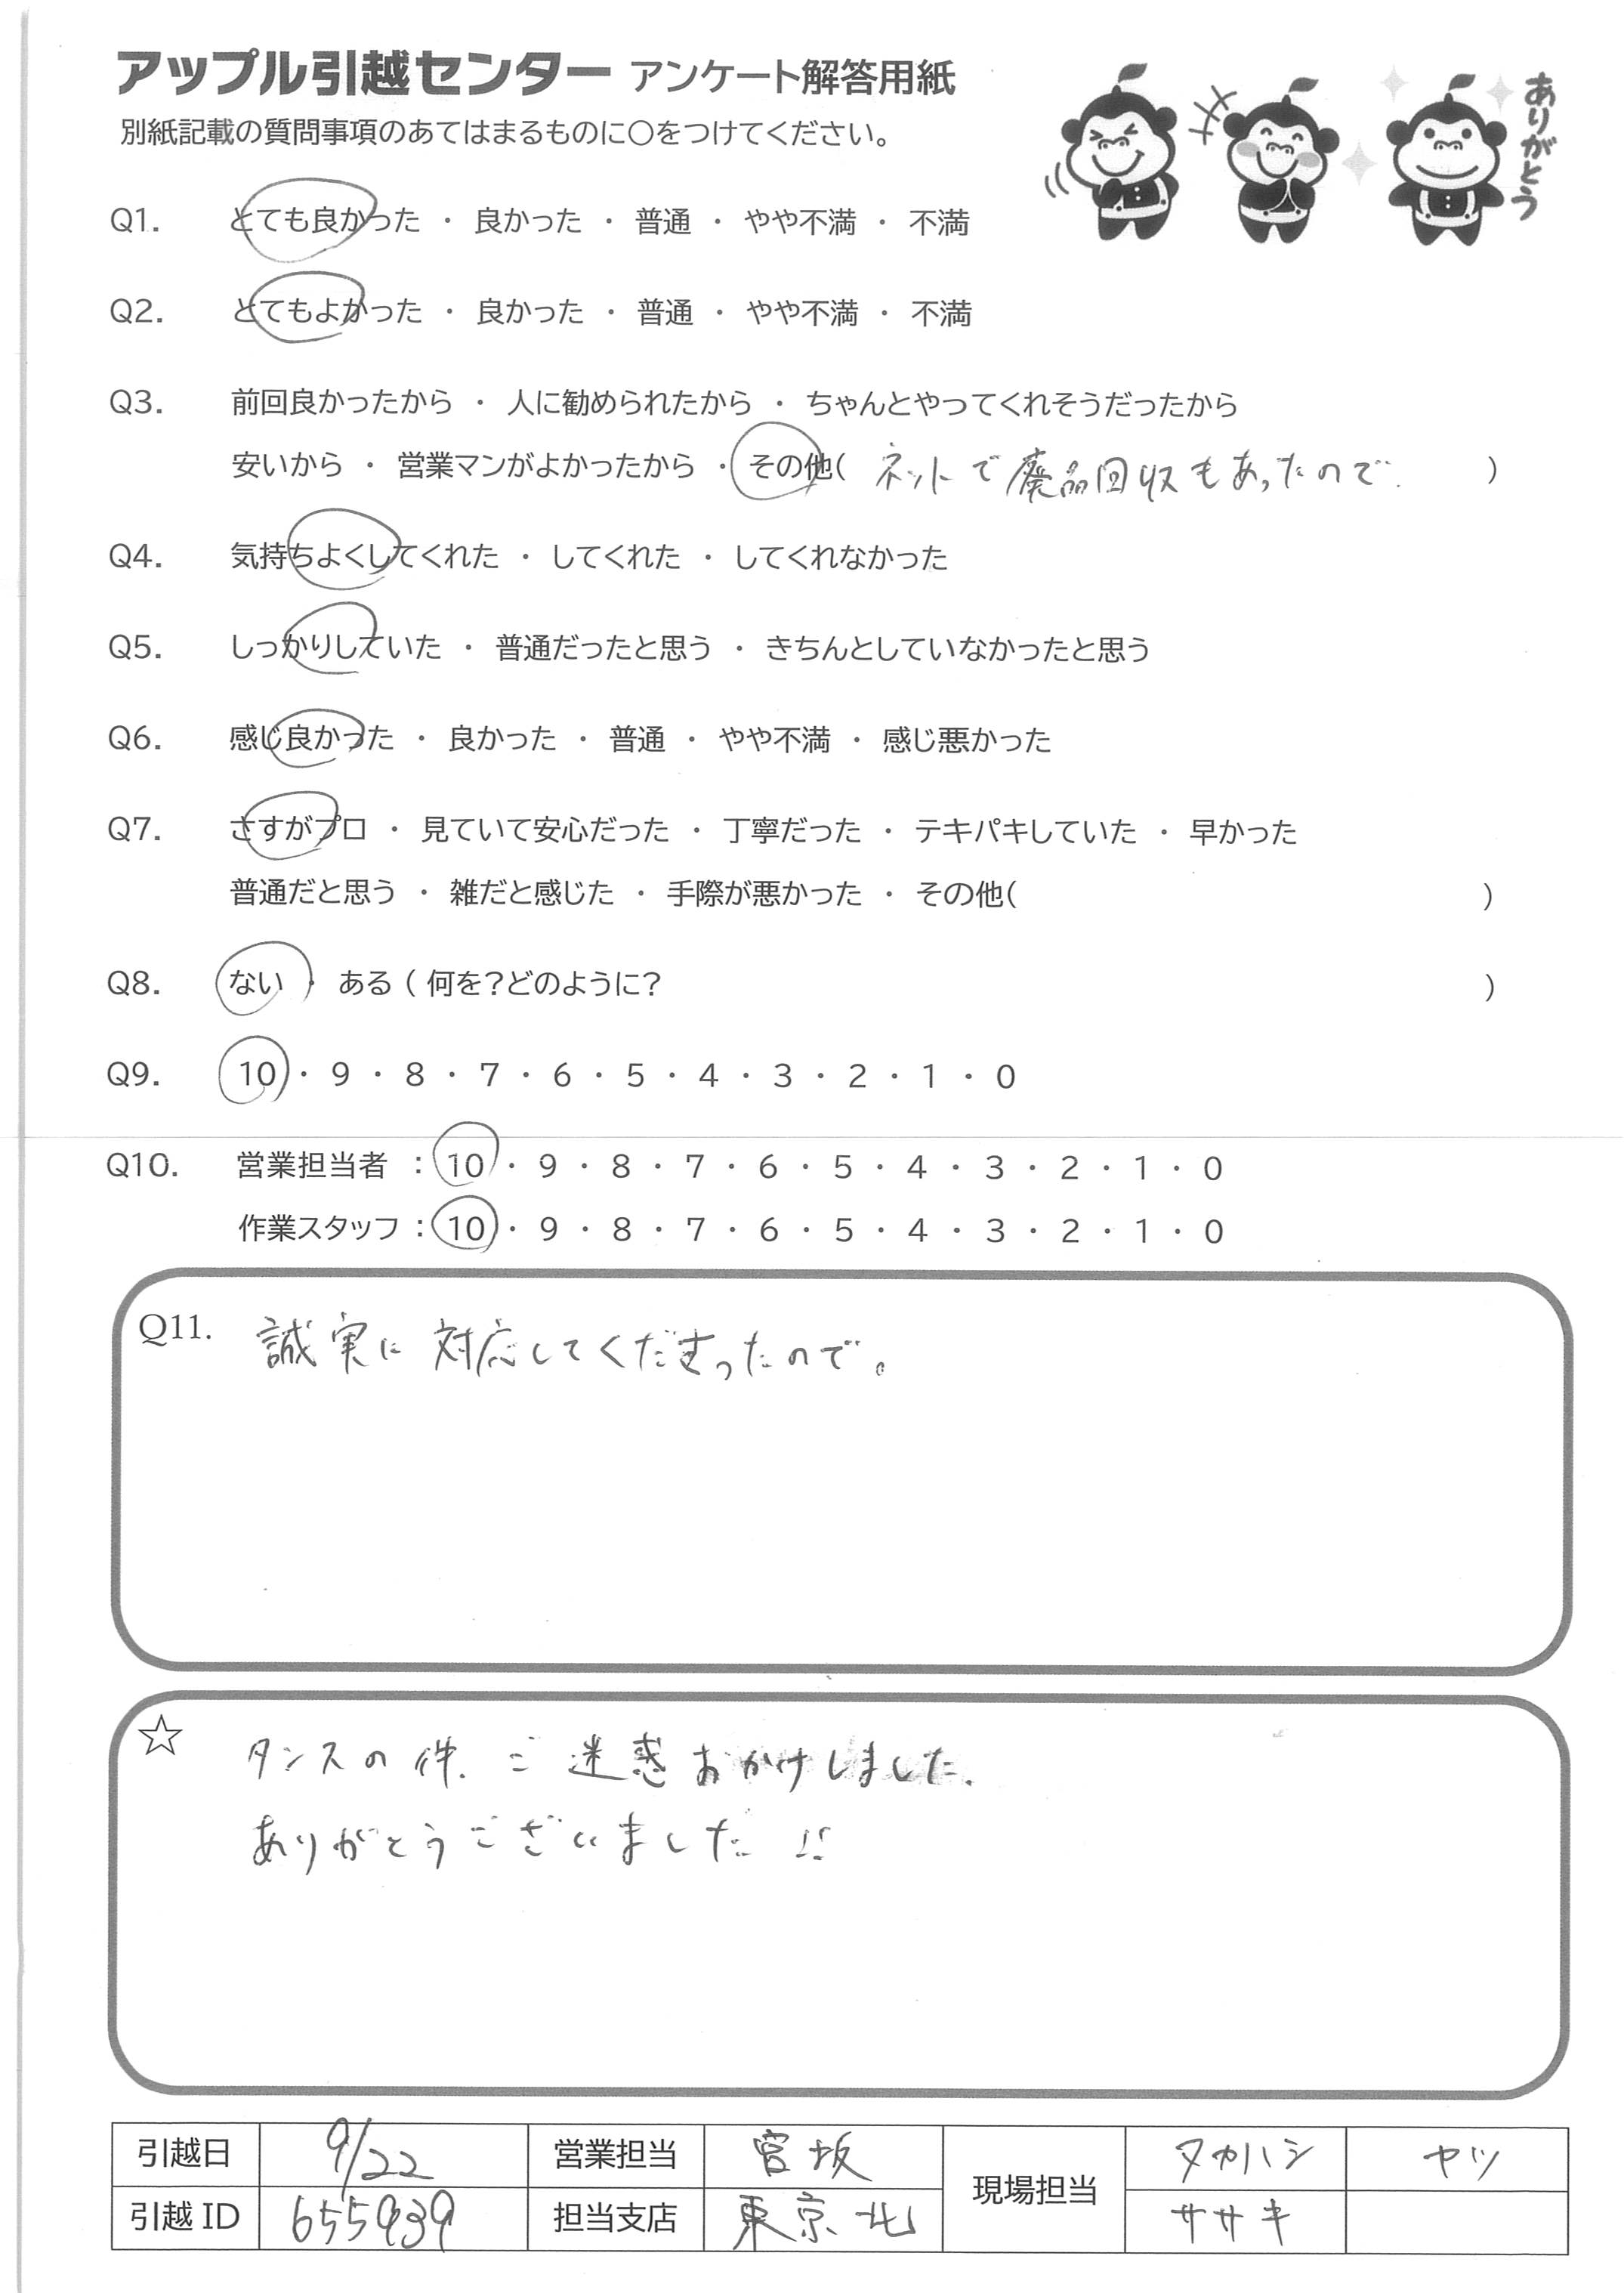 アップル引越センター アンケート解答用紙
ありがとう
別紙記載の質問事項のあてはまるものに○をつけてください。
Q1. とても良かった ・ 良かった ・ 普通 ・ やや不満 ・ 不満
Q2. とてもよかった ・ 良かった ・ 普通 ・ やや不満 ・ 不満
Q3. 前回良かったから ・ 人に勧められたから ・ ちゃんとやってくれそうだったから
安いから ・ 営業マンがよかったから ・ その他( ネットで廃品回収もあったので. )
Q4. 気持ちよくしてくれた ・ してくれた ・ してくれなかった
Q5. しっかりしていた ・ 普通だったと思う ・ きちんとしていなかったと思う
Q6. 感じ良かった ・ 良かった ・ 普通 ・ やや不満 ・ 感じ悪かった
Q7. さすがプロ ・ 見ていて安心だった ・ 丁寧だった ・ テキパキしていた ・ 早かった
普通だと思う ・ 雑だと感じた ・ 手際が悪かった ・ その他( )
Q8. ない ・ ある ( 何を?どのように? )
Q9. 10 ・ 9 ・ 8 ・ 7 ・ 6 ・ 5 ・ 4 ・ 3 ・ 2 ・ 1 ・ 0
Q10. 営業担当者 : 10 ・ 9 ・ 8 ・ 7 ・ 6 ・ 5 ・ 4 ・ 3 ・ 2 ・ 1 ・ 0
作業スタッフ : 10 ・ 9 ・ 8 ・ 7 ・ 6 ・ 5 ・ 4 ・ 3 ・ 2 ・ 1 ・ 0
Q11. 誠実に対応してくださったので。
☆ タンスの件.ご迷惑おかけしました.
ありがとうございました!!
引越日 9/22 営業担当 宮坂 現場担当 タカハシ ヤツ
引越ID 655939 担当支店 東京北 ササキ